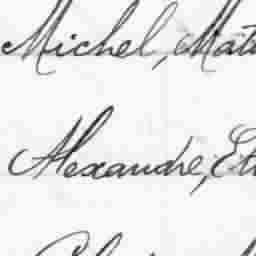 Michel, Mat
Alexandre, Et